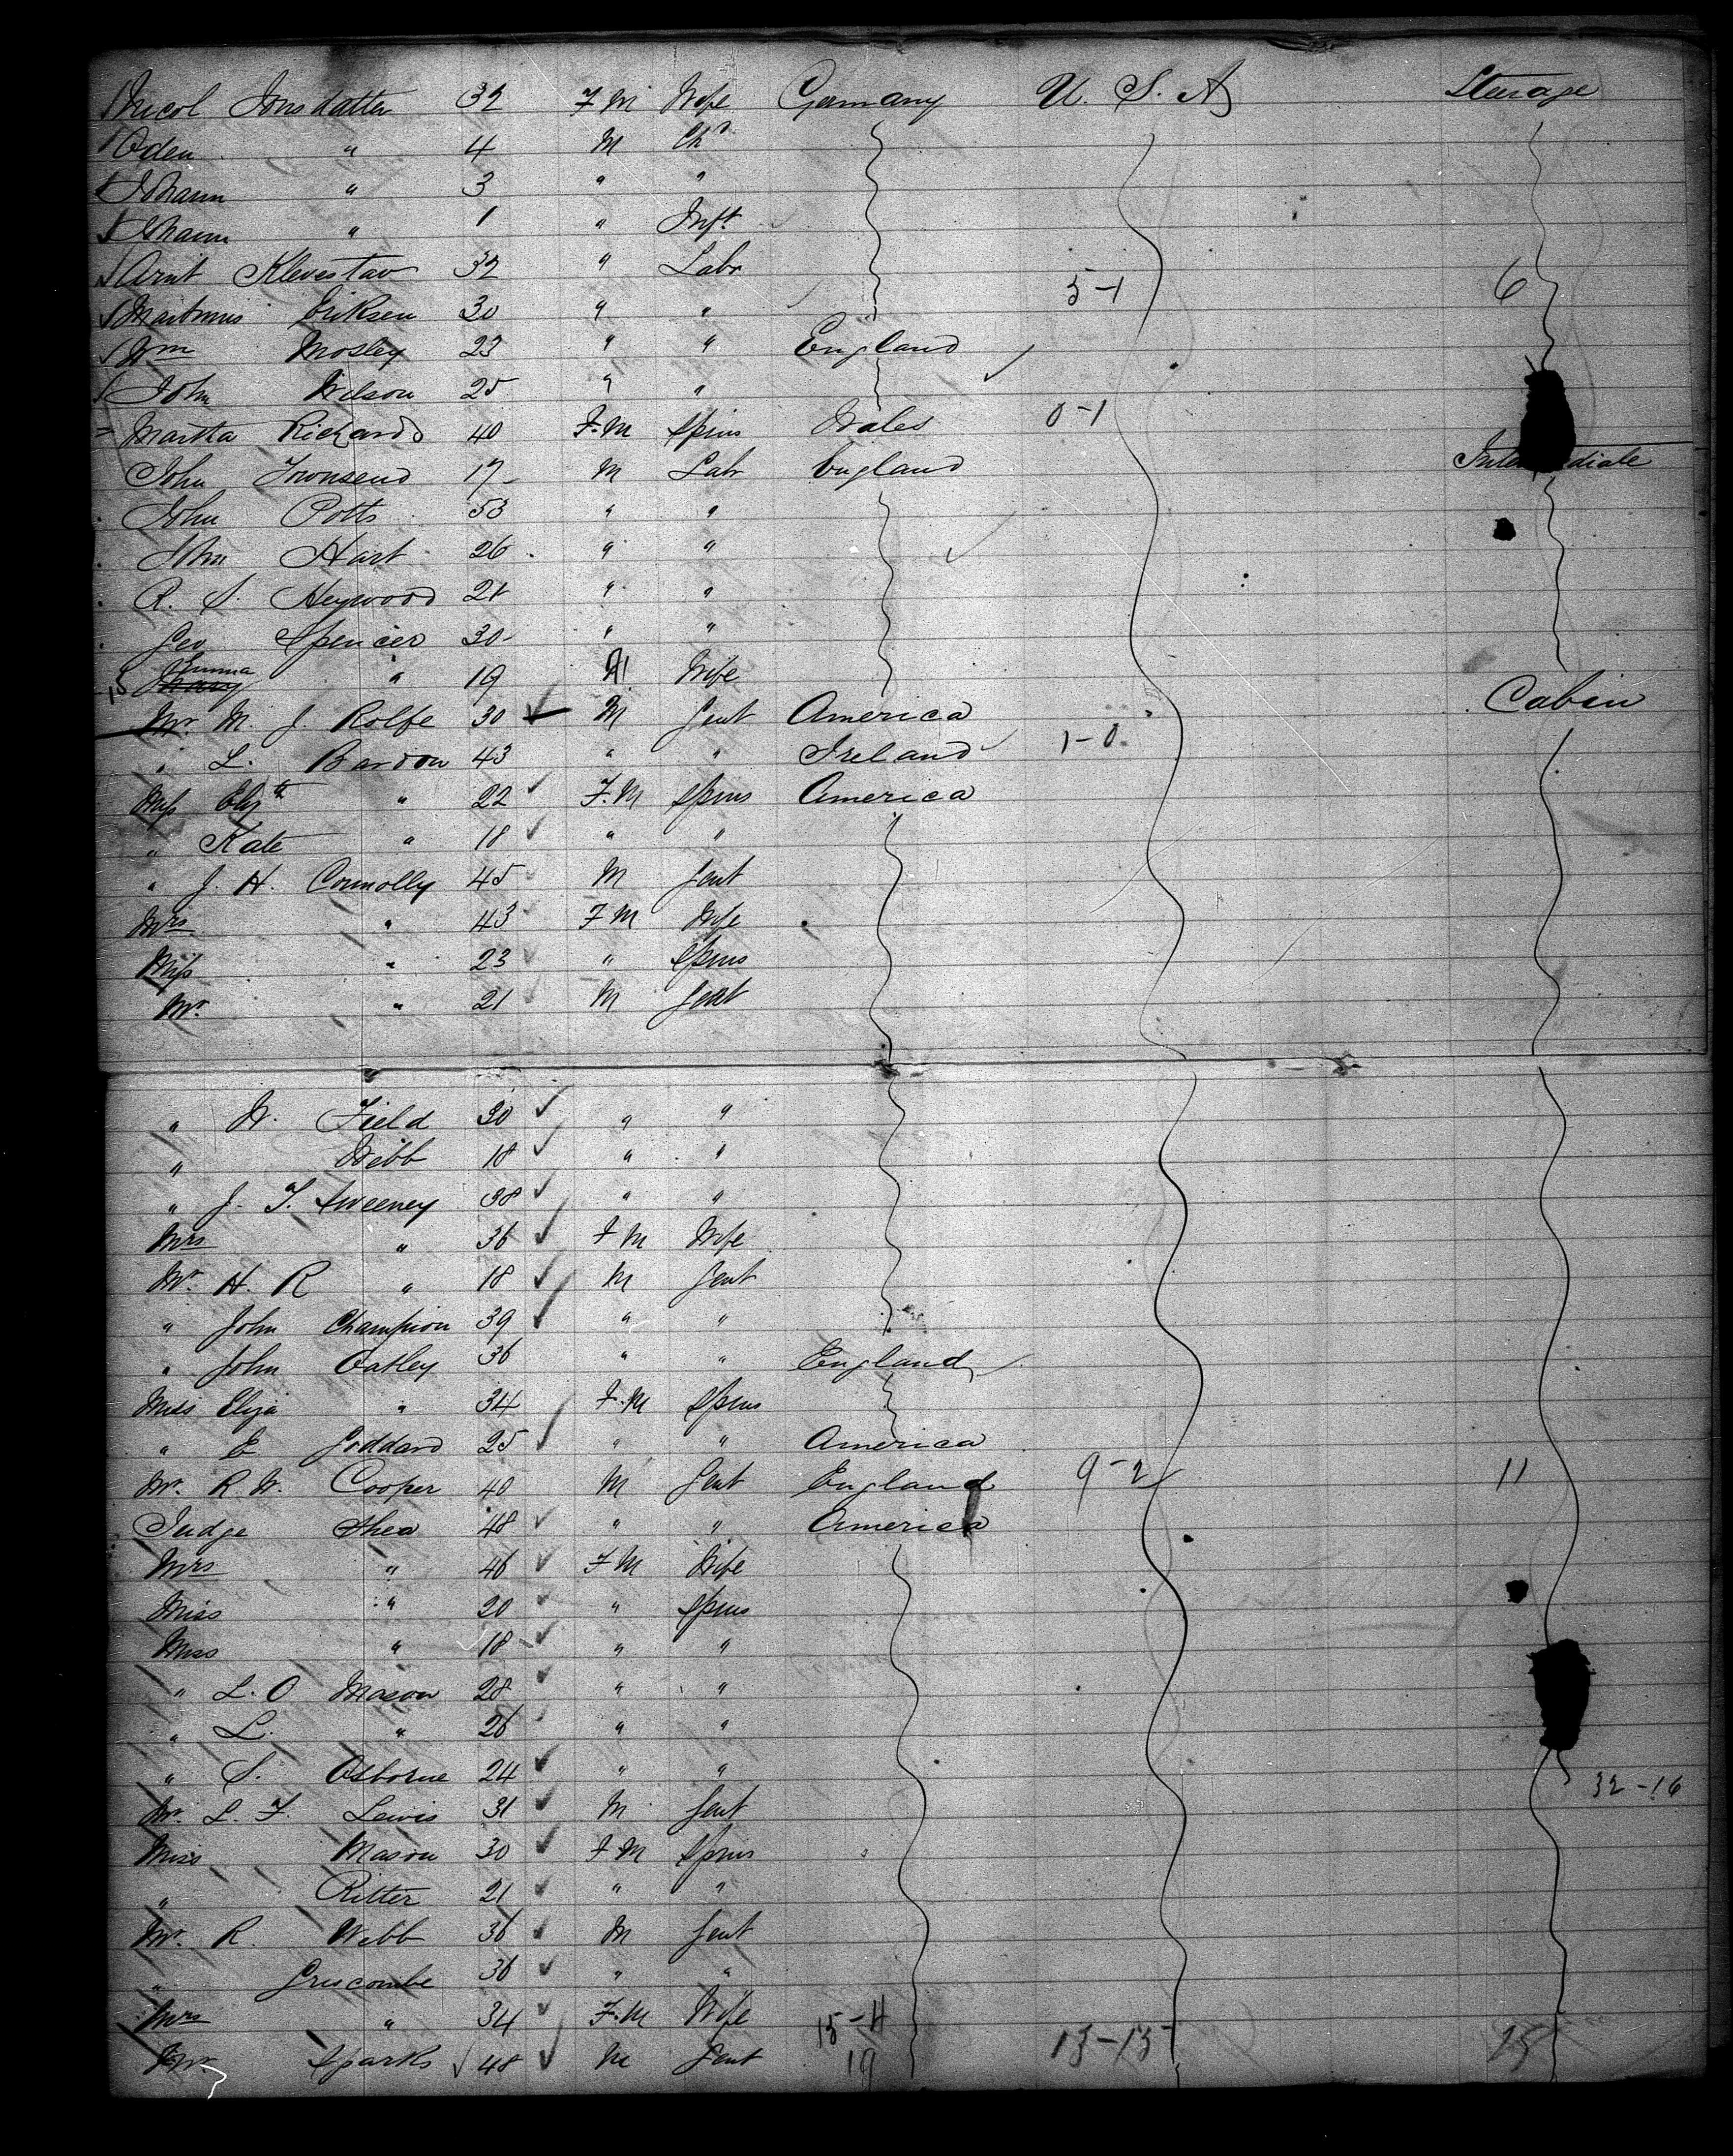 Nicol Jonsdatter 32 F M Wife Germany U. S. A Steerage
Oden " 4 M Chd
Johann " 3 " "
Johann " 1 " Inft
Arnt Klevestav 32 " Labr
5-1 6
Eriksen 30 " "
Wm Mosley 23 " " England
John Wilson 25 " "
Martha Richards 40 F. M Spins Wales 0-1
John Townsend 17 M Labr England Intermediate
John Potts 53 " "
John Hart 26 " "
R. S. Heywood 21 " "
Geo Spencer 30 " "
Emma
15 Mary " 19 Wife
Mr. M. J. Rolfe 30 M Gent America Cabin
" L. Bardon 43 " " Ireland 1-0
Miss Elizth " 22 F. M Spins America
" Kate " 18 " "
" J. H. Connolly 45 M Gent
Mrs " 43 F M Wife
Miss " 23 " Spins
Mr. " 21 M Gent
" W. Field 30 " "
" Webb 18 " "
" J. T. Sweeney 38 " "
Mrs " 36 F M Wife
Mr. H. R " 18 M Gent
" John Champion 39 " "
" John Oatley 36 " " England
Miss Eliza " 34 F. M Spins
" E Goddard 25 " " America
Mr. R. W. Cooper 40 M Gent England 9-2 11
Judge Shea 48 " " America
Mrs " 46 F M Wife
Miss " 20 " Spins
Miss " 18 " "
" L. O Mason 28 " "
" L. " 26 " "
" S. Osborne 24 " "
32-16
Mr. L. F. Lewis 31 M Gent
Miss Mason 30 F M Spins
" Ritter 21 " "
Mr. R. Webb 36 M Gent
" Griscombe 36 " "
Mrs " 34 F. M Wife 15-4
Mr. Sparks 48 M Gent 19 13-15 25